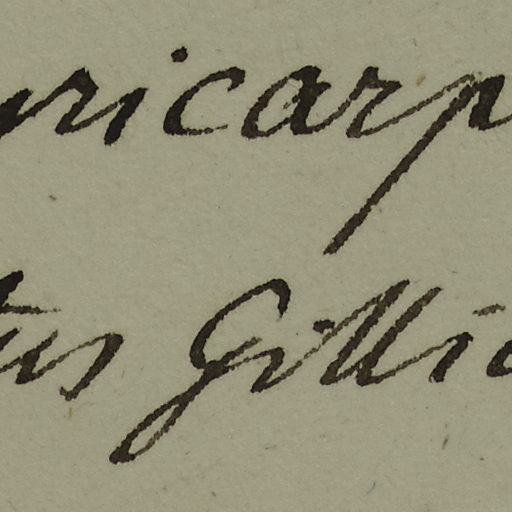 yricarp
tus Gillie